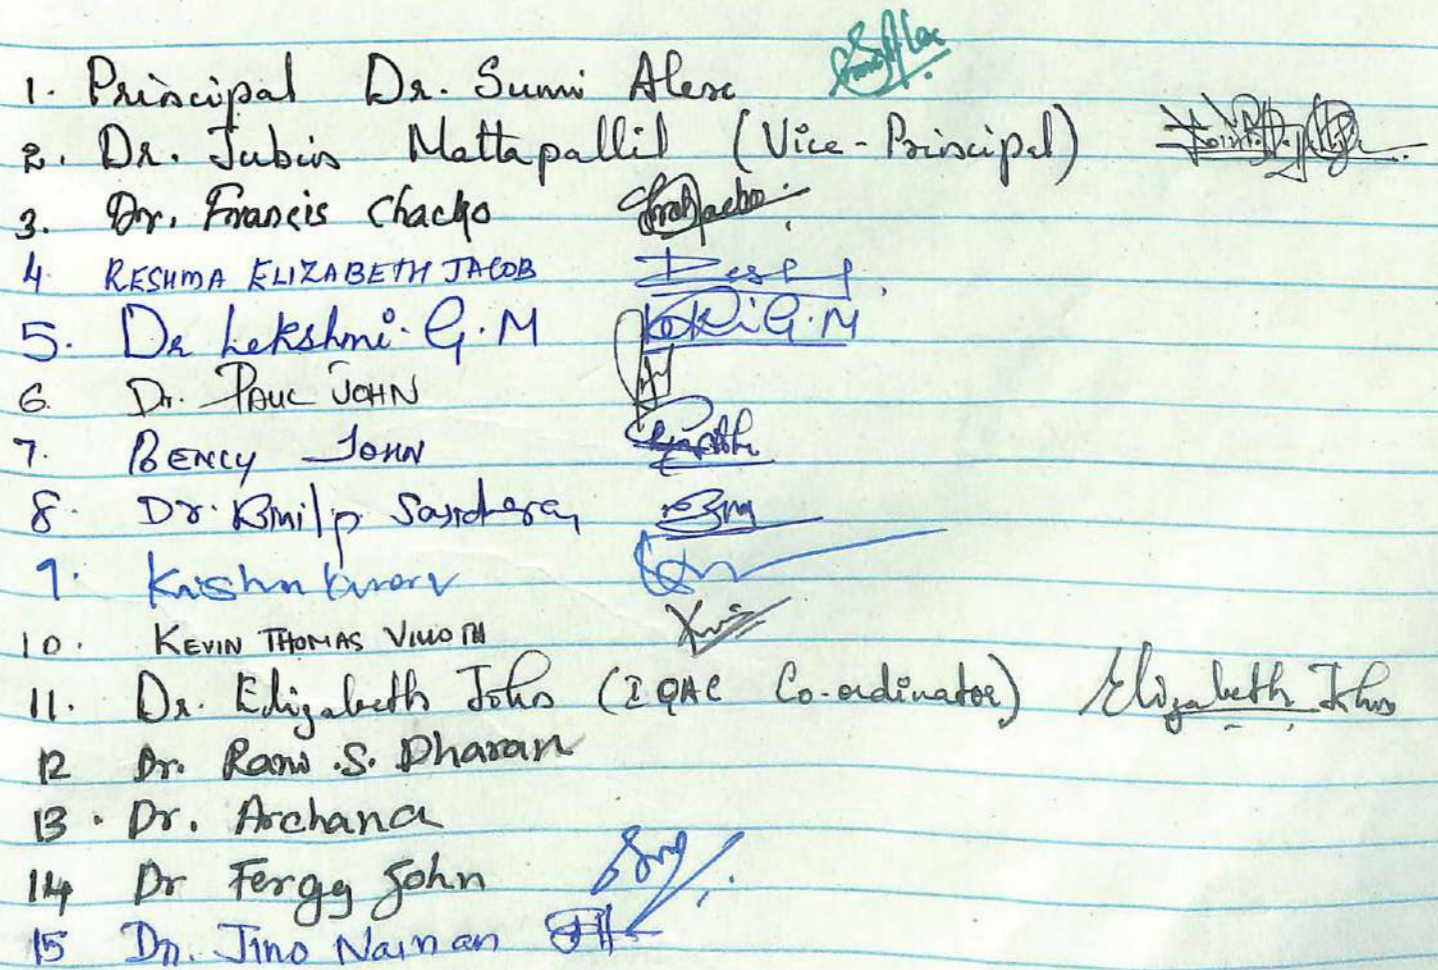 1. Principal Dr. Sumi Alex
2. Dr. Jubin Mattapallil (Vice-Principal)
3. Dr. Francis Chacko
4. RESHMA ELIZABETH JACOB
5. Dr Lekshmi. G.M G.M
6. Dr. PAUL JOHN
7. BENCY JOHN
8. Dr.
9. Krishna
10. KEVIN THOMAS
11. Dr. Elizabeth John (IQAC Co-ordinator) Elizabeth John
12 Dr. Rani .S. Dharan
13. Dr. Archana
14 Dr Fergy John
15 Dr. Jino Nainan